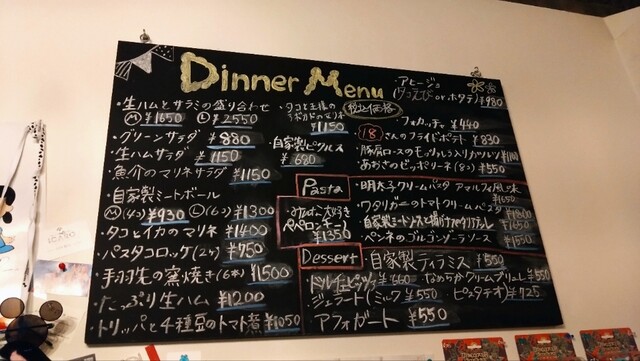 Dinner Menu
・生ハムとサラミの盛り合わせ
Ⓜ ¥1650 Ⓛ ¥2550
・グリーンサラダ ¥880
・生ハムサラダ ¥1150
・魚介のマリネサラダ ¥1150
・自家製ミートボール
Ⓜ(4コ) ¥930 Ⓛ(6コ) ¥1300
・タコとイカのマリネ ¥1400
・パスタコロッケ(2ケ) ¥750
・手羽先の窯焼き(6本) ¥1500
・たっぷり生ハム ¥1200
・トリッパと4種豆のトマト煮 ¥1050
¥1150
・自家製ピクルス
¥680
税込価格
・アヒージョ
(タコ えび or ホタテ) ¥980
・フォカッチャ ¥440
さんのフライドポテト ¥830
・豚肩ロースのモッツァレラ入りカツレツ
・あおさのゼッポリーネ(8コ) ¥550
Pasta
大好き
ペペロンチーノ
¥1350
・明太子クリームパスタ アマルフィ風
・ワタリガニのトマトクリームパスタ
・自家製ミートソースと揚げナスの
・ペンネのゴルゴンゾーラソース ¥1550
Dessert
・自家製ティラミス ¥550
¥660 なめらかクリームブリュレ ¥550
・ジェラート(ミルク ¥550 ピスタチオ) ¥725
・アフォガート ¥550